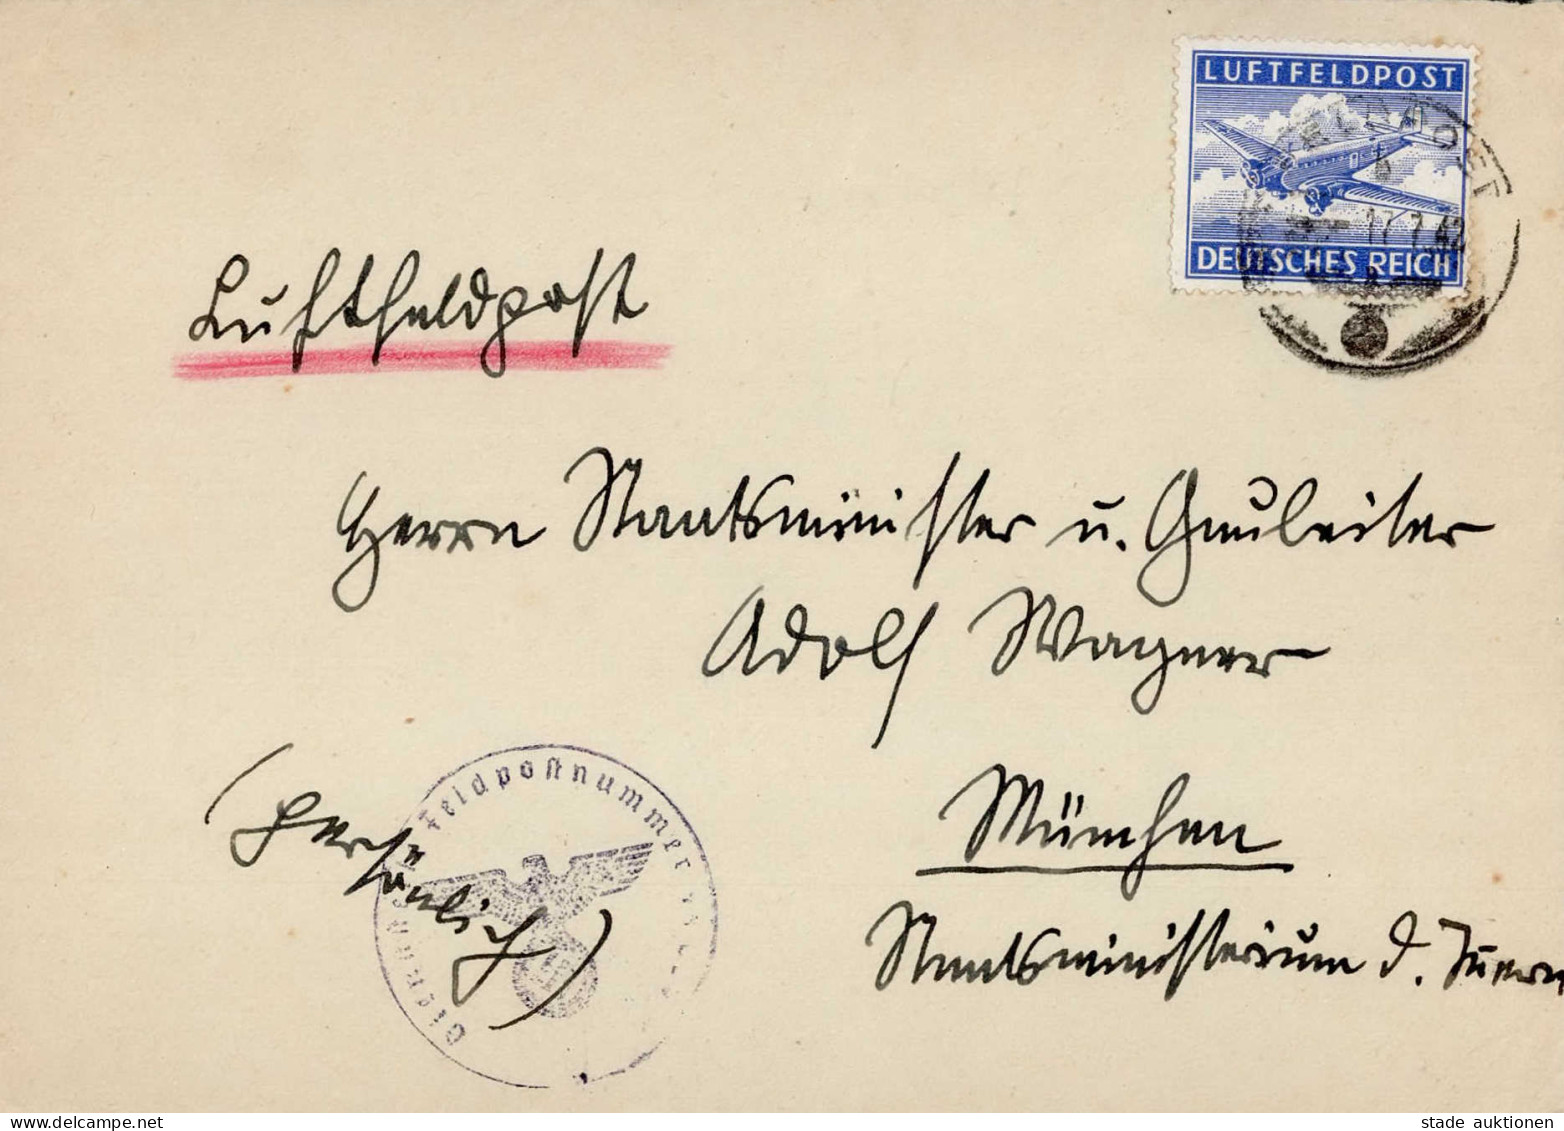 LUFTFELDPOST
DEUTSCHES REICH
17.7.42
Luftfeldpost
Herrn Staatsminister u. Gauleiter
Adolf Wagner
(persönlich)
Feldpostnummer
München
Staatsministerium d. Innern
www.delcampe.net
stade auktionen